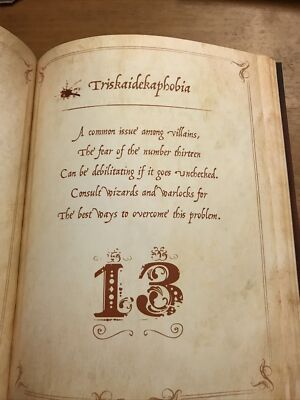 Triskaidekaphobia
A common issue among villains,
The fear of the number thirteen
Can be debilitating if it goes unchecked.
Consule wizards and warlocks for
The best ways to overcome this problem.
13